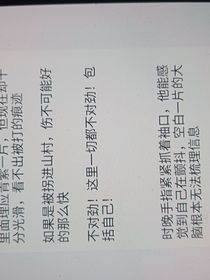 里面理应青紫一片，但现在却十
分光滑，看不出被打的痕迹
如果是被拐进山村，伤不可能好
的那么快
不对劲！这里一切都不对劲！包
括自己！
时晚手指紧紧抓着袖口，他能感
觉到自己在颤抖，空白一片的大
脑根本无法梳理信息